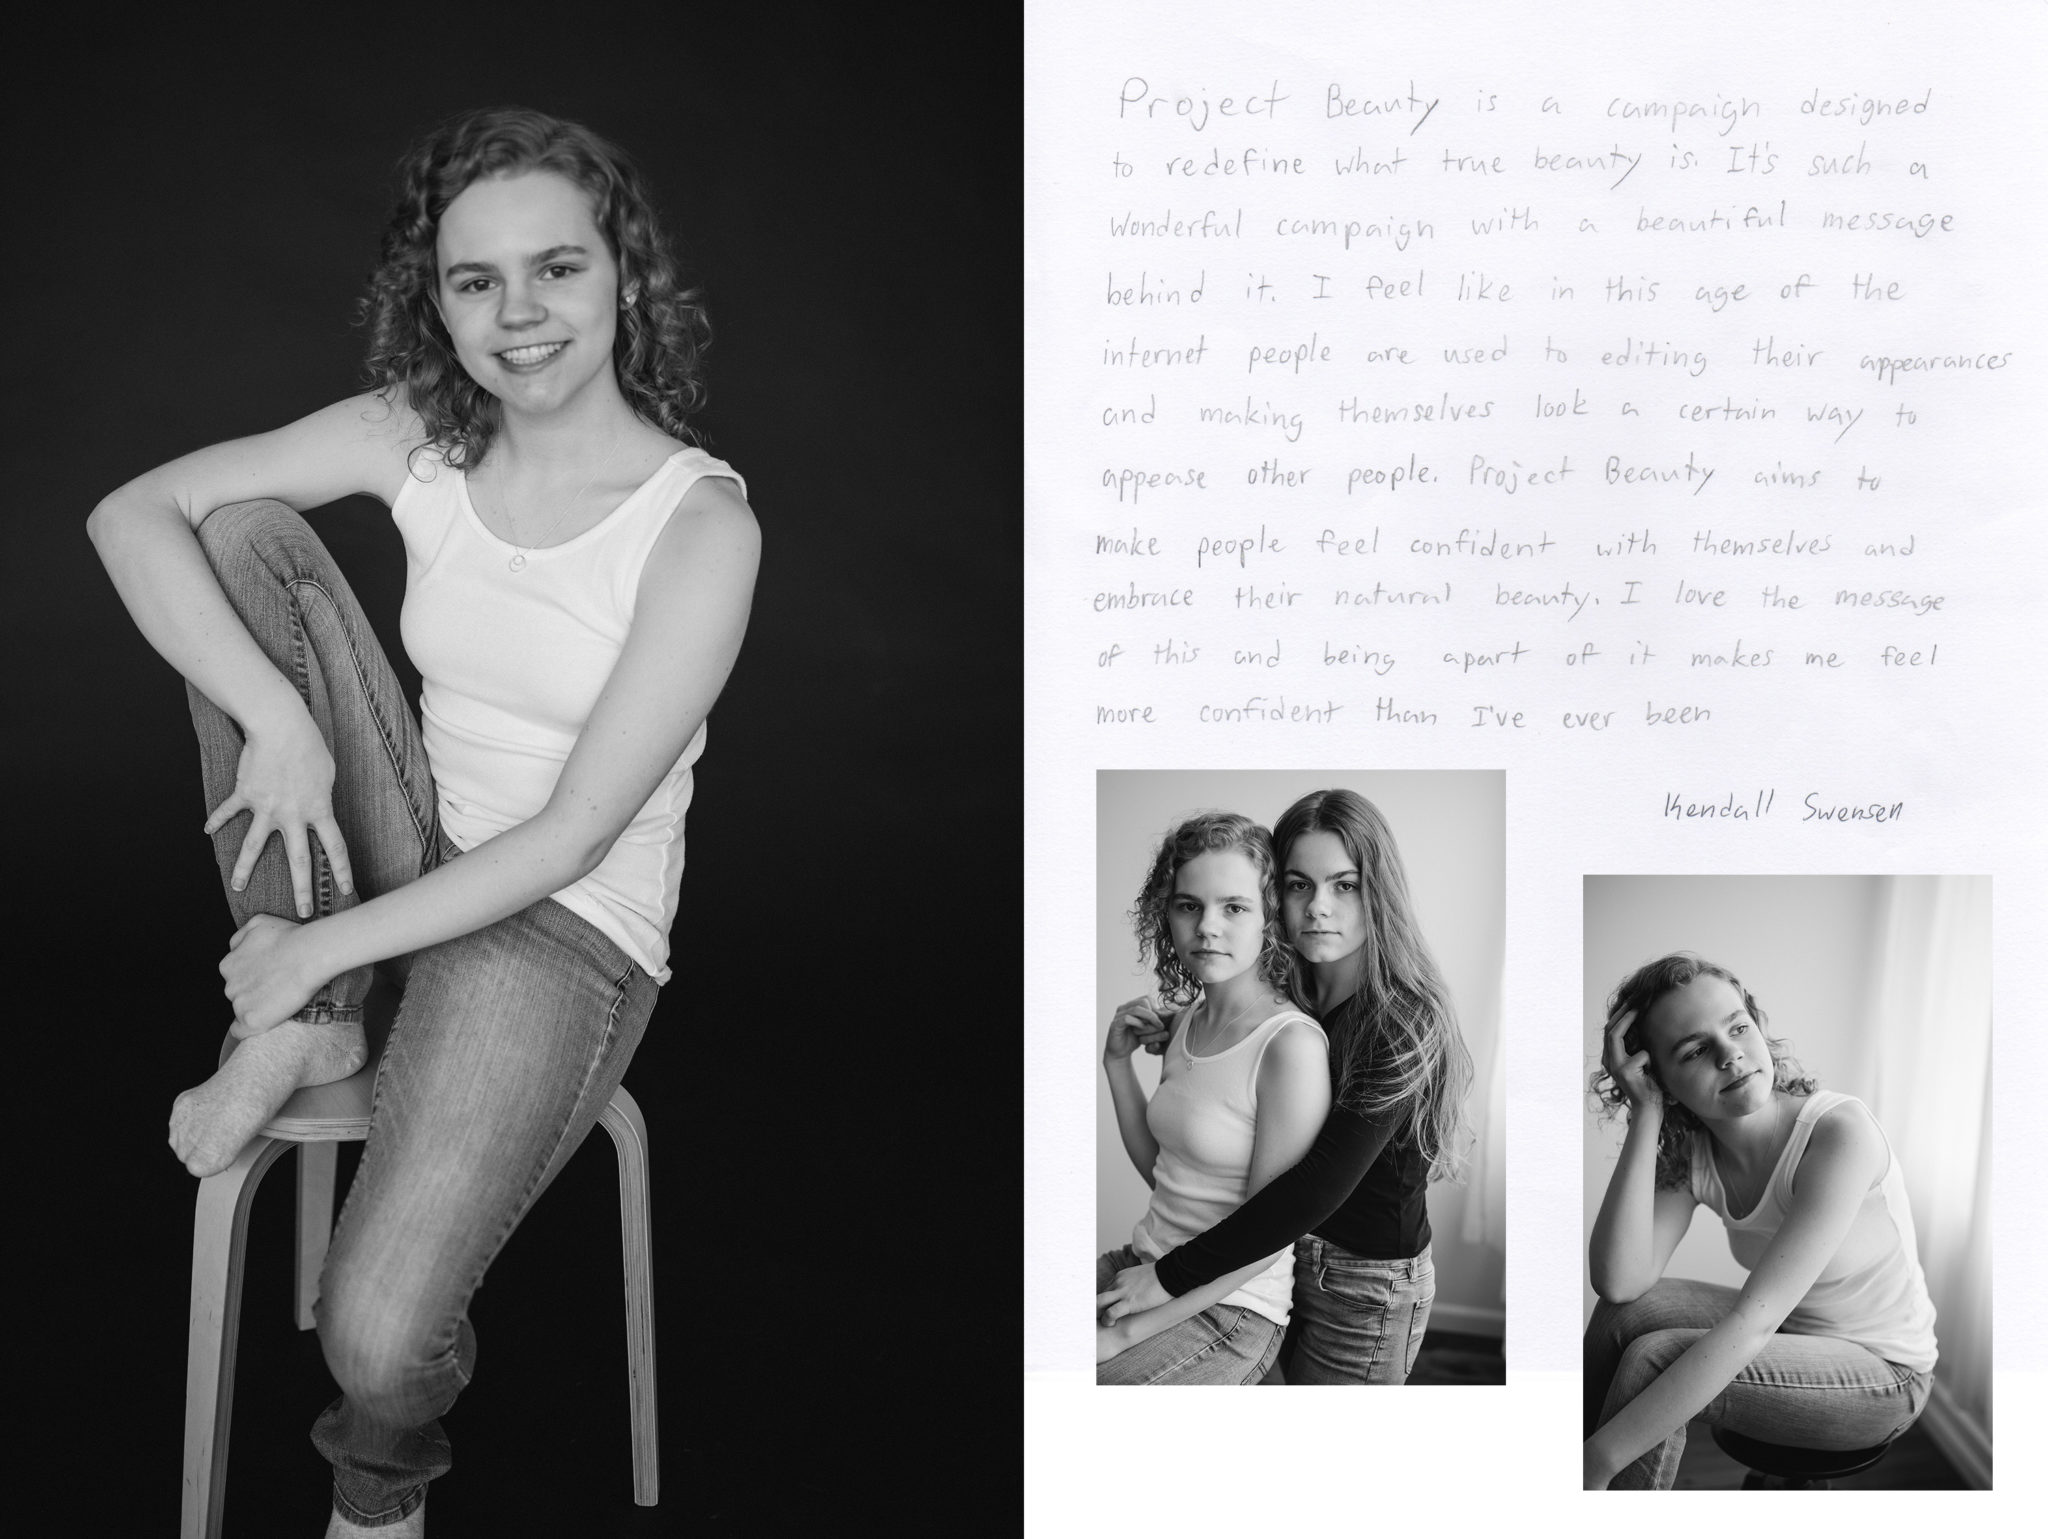 Project Beauty is a campaign designed
to redefine what true beauty is. It's such a
wonderful campaign with a beautiful message
behind it. I feel like in this age of the
internet people are used to editing their appearances
and making themselves look a certain way to
appease other people. Project Beauty aims to
make people feel confident with themselves and
embrace their natural beauty. I love the message
of this and being apart of it makes me feel
more confident than I've ever been
Kendall Swensen